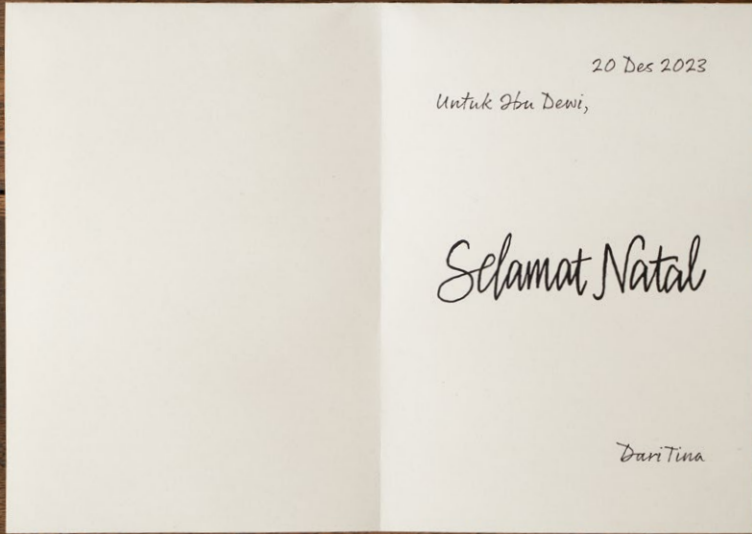 20 Des 2023
Untuk Ibu Dewi,
Selamat Natal
Dari Tina